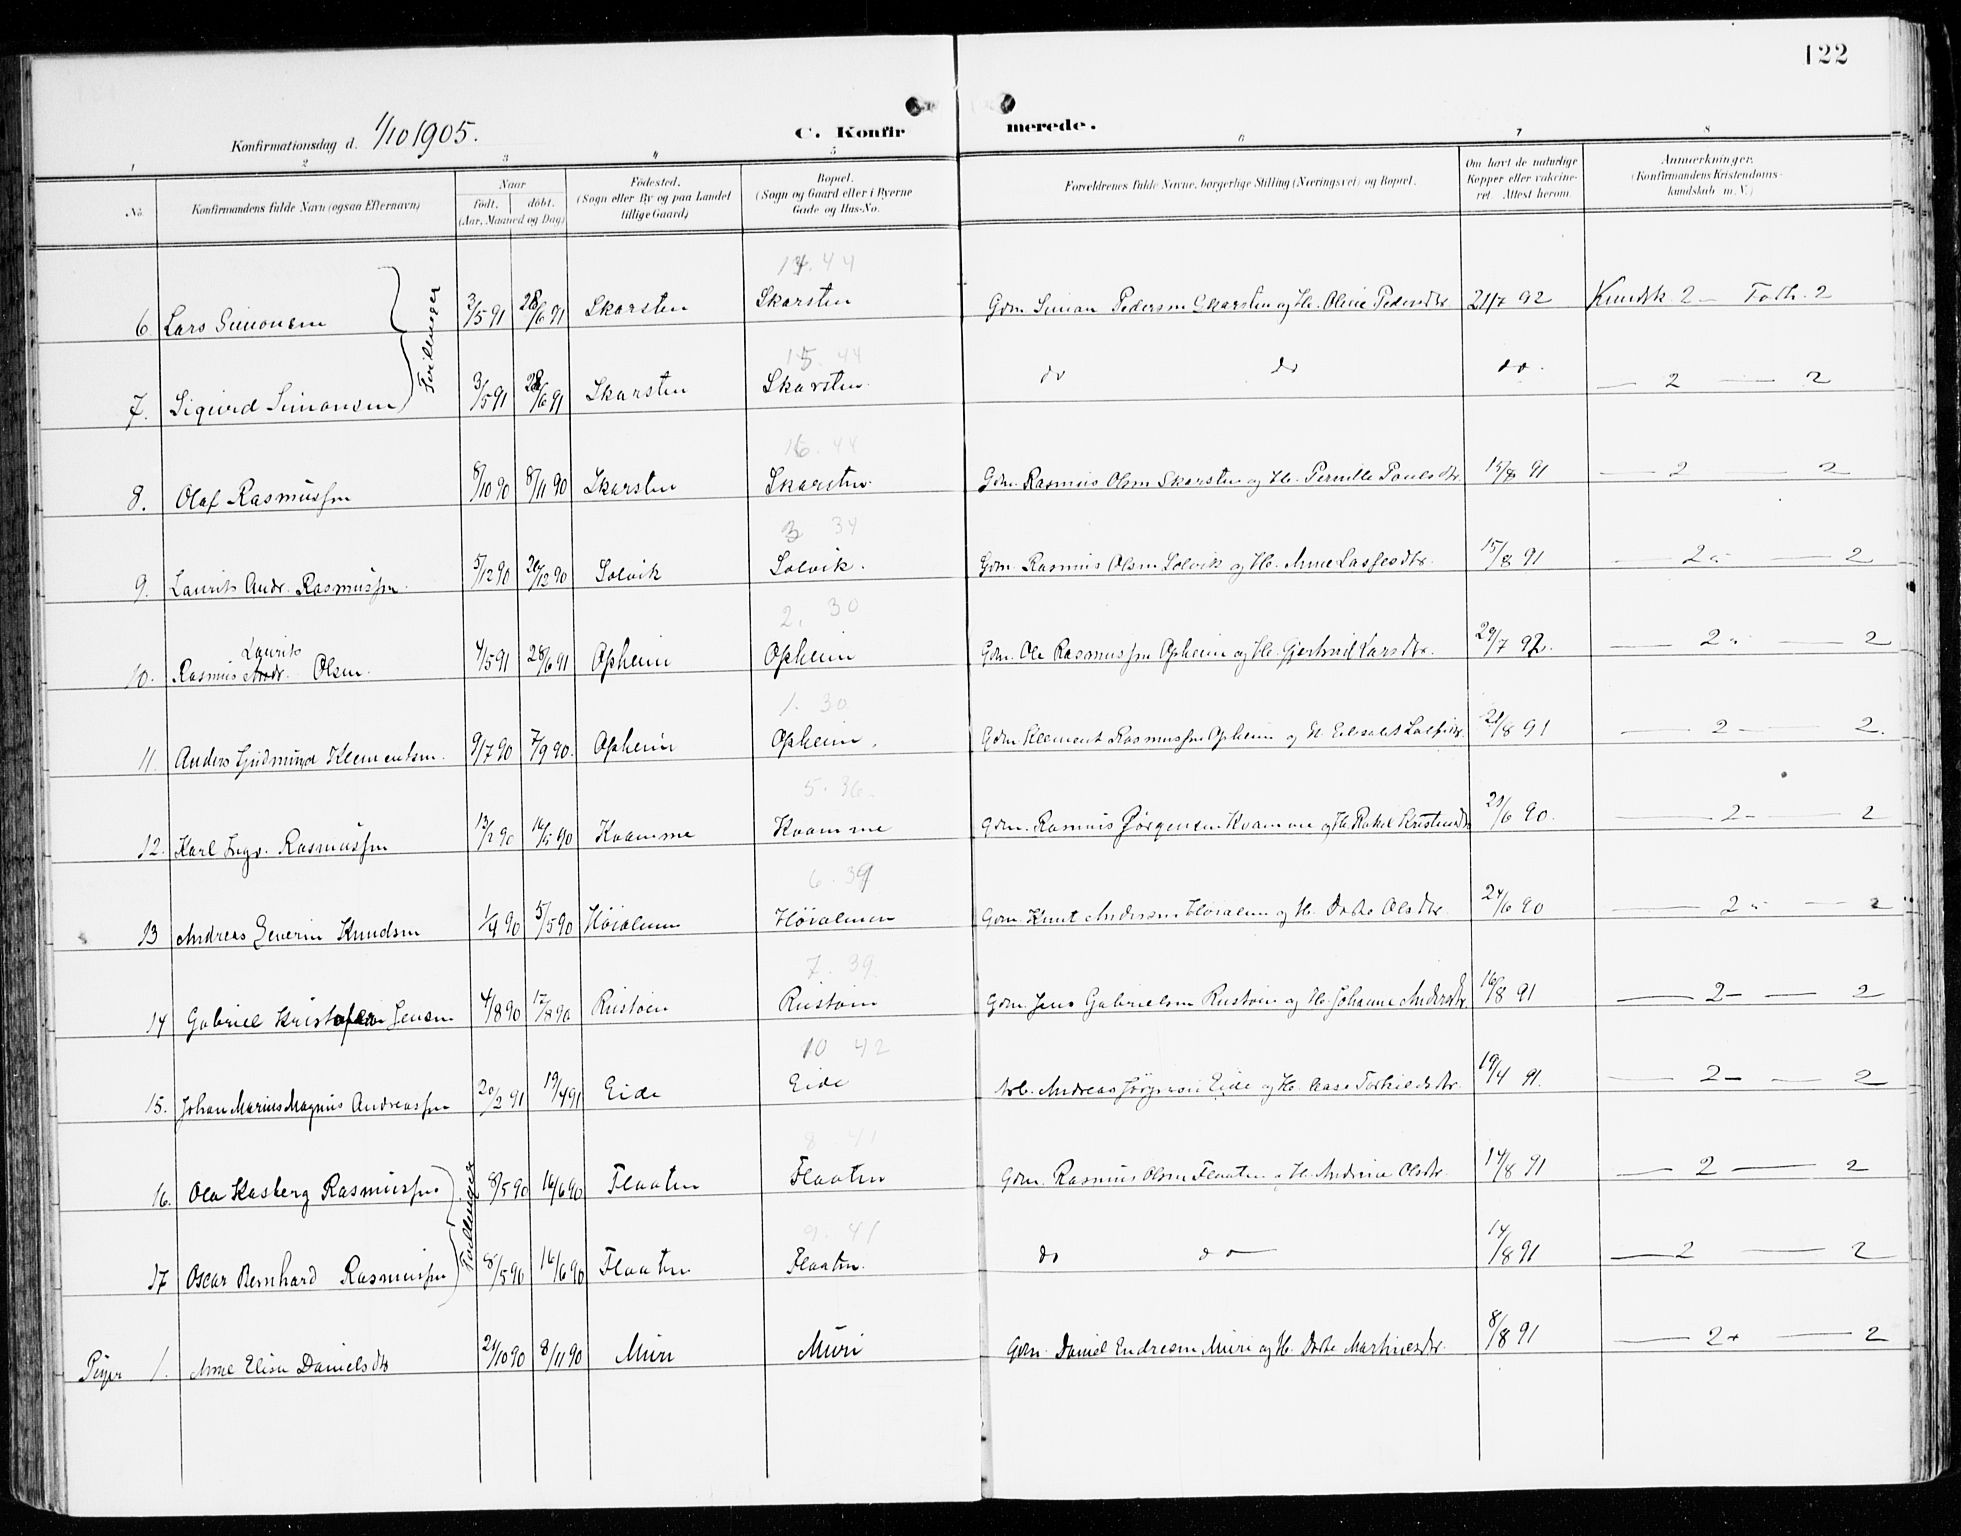 122
Konfirmationsdag d. 1/10 1905. C. Konfirmerede.
1 2 3 4 5 6 7 8
No. Konfirmandens fulde Navn (ogsaa Efternavn) Naar født, døbt. (Aar, Maaned og Dag) Fødested. (Sogn eller By og paa Landet tillige Gaard) Bopæl. (Sogn og Gaard eller i Byerne Gade og Hus-No. Forældrenes fulde Navne, borgerlige Stilling (Næringsvei) og Bopæl. Om havt de naturlige Kopper eller vakcineret. Attest herom. Anmærkninger. (Konfirmandens Kristendomskundskab m. V.)
14. 44
6. Lars Simonsen 3/5 91 28/6 91 Skarsten Skarsten Gdm. Simon Pedersen Skarsten og H. Oline Pedersdtr. 21/7 92 Kundsk. 2 - Forh. 2
Tvillinger
15. 44
7. Sigurd Simonsen 3/5 91 28/6 91 Skarsten Skarsten. do do do. — 2 — 2
16. 44
8. Olaf Rasmussen 8/10 90 8/11 90 Skarsten Skarsten. Gdm. Rasmus Olsen Skarsten og H. Pernille Paulsdtr. 15/8 91 — 2 — 2
3 34
9. Laurits Andr. Rasmussen. 5/12 90 26/12 90 Solvik Solvik. Gdm. Rasmus Olsen Solvik og H. Anne 15/8 91 — 2 — 2
2. 30
10. Rasmus Laurits Andr. Olsen. 4/5 91 28/6 91 Opheim Opheim Gdm. Ole Rasmussen Opheim og H. Gjertrud Larsdtr. 29/7 92. — 2 — 2
1. 30
11. Anders Klementsen. 9/7 90 7/9 90. Opheim Opheim. Gdm. Klement Rasmussen Opheim og H. 21/8 91 — 2 — 2.
5. 36.
12. Karl Ingv. Rasmussen 13/2 90 16/5 90 Kvamme Kvamme Gdm. Rasmus Jørgensen Kvamme og H. Rakel 21/6 90. — 2 - — 2
6. 39
13 Andreas Severin Knudsen 1/4 90 5/5 90 Høialmen Høialmen Gdm. Knut Andersen Høialmen og H. Dorte Olsdtr. 24/6 90 — 2 — 2
7. 39.
14 Gabriel Kristofer Jensen 4/8 90 17/8 90 Rustøen Rustøin Gdm. Jens Gabrielsen Rustøen og H. Johanne Andersdtr. 16/8 91 — 2 - — 2
10 42
15. Johan Marius Magnus Andreassen 20/2 91 19/4 91 Eide Eide Arb. Andreas Jørgensen Eide og H. Aase Torkildsdtr. 19/4 91. — 2 - — 2
8 41
16. Ola Kasberg Rasmussen 8/5 90 16/6 90 Flaaten Flaaten Gdm. Rasmus Olsen Flaaten og H. Andrine Olsdtr. 14/8 91 — 2 — 2
Tvillinger
9. 41
17 Oscar Bernhard Rasmussen 8/5 90 16/6 90 Flaaten Flaaten. do do — 14/8 91 — 2 — 2
Piger 1. Anne Elisa Danielsdtr 21/10 90 8/11 90 Muri Muri Gdm. Daniel Endresen Muri og H. Dorte Martinusdtr. 8/8 91 — 2+ — 2